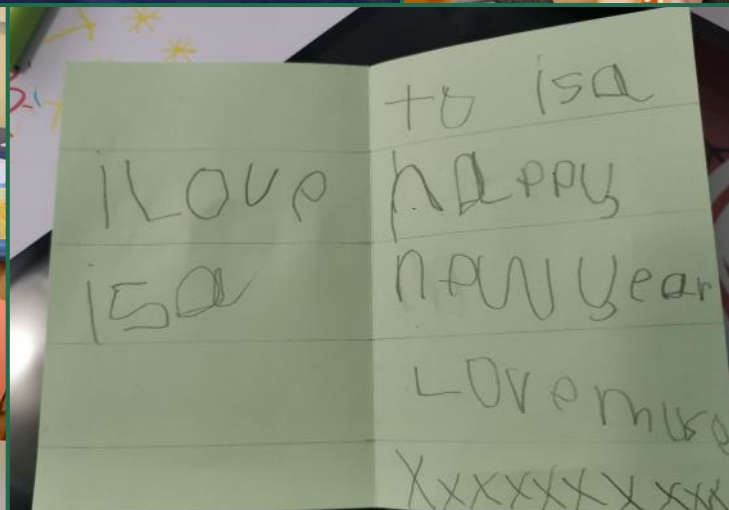 i Love
isa
to isa
happy
new year
Love
Xxxxxxxxxxx